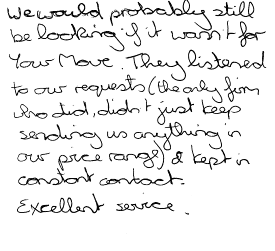 We would probably still
be looking if it wasn't for
Your Move. They listened
to our requests (the only firm
who did, didn't just keep
sending us anything in
our price range) & kept in
constant contact.
Excellent service.